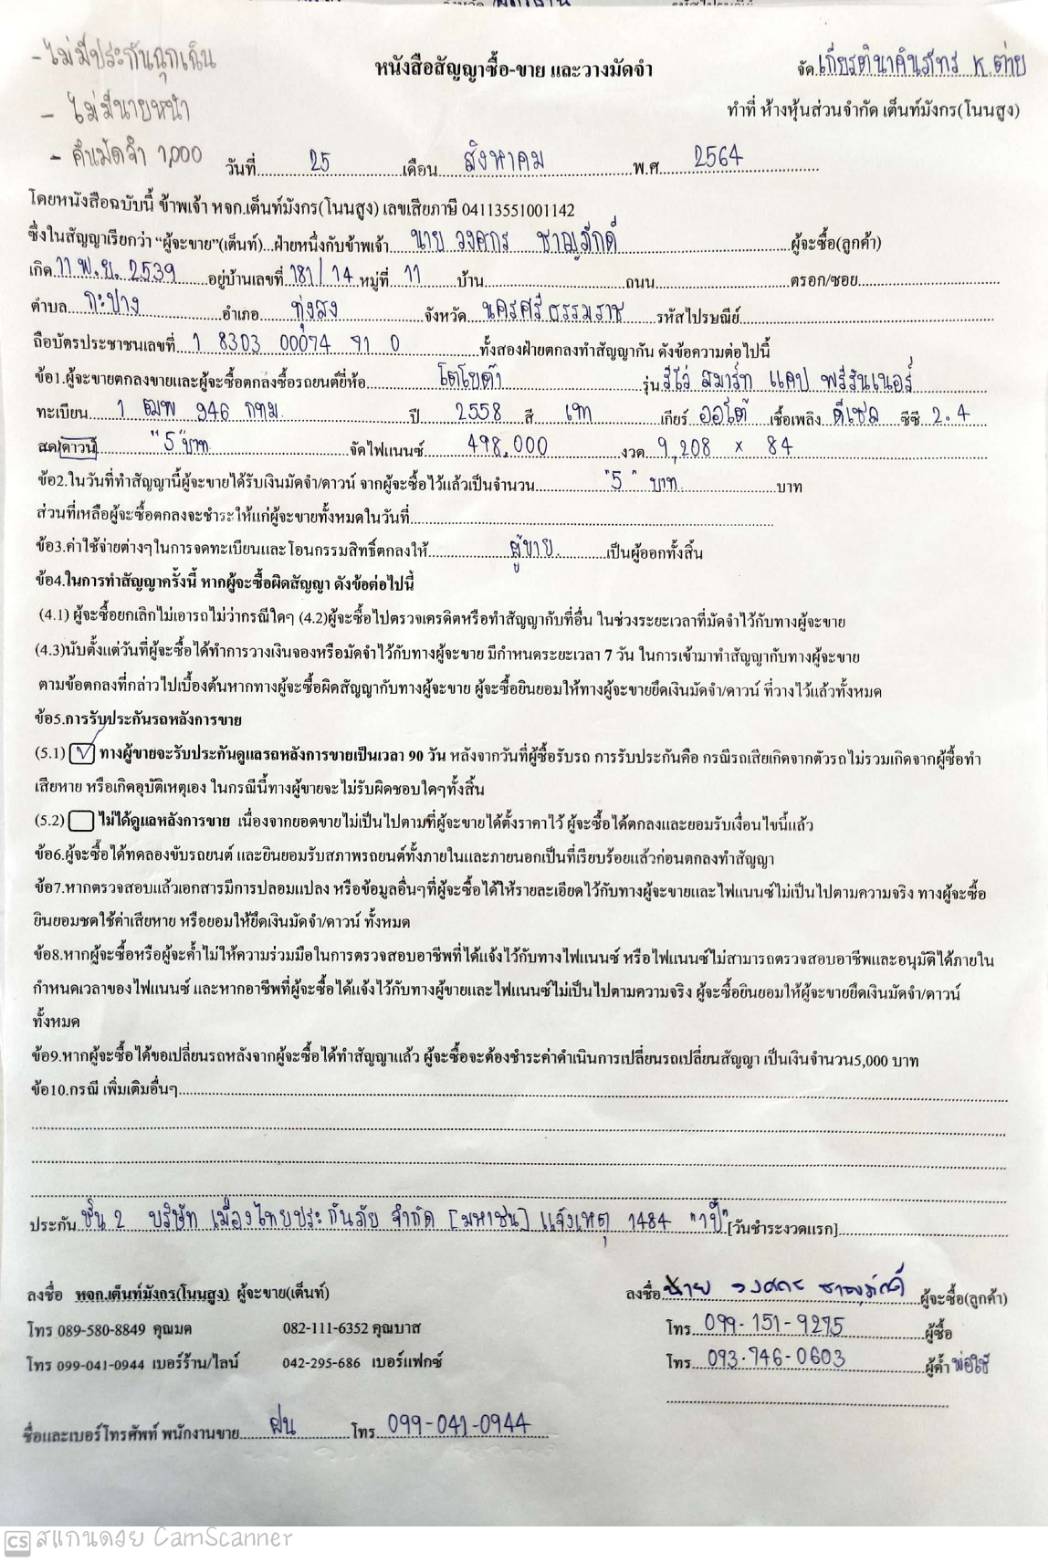 - ไม่มีประกันฉุกเฉิน
หนังสือสัญญาซื้อ-ขาย และวางมัดจำ
จัด เกียรตินาคินภัทร K.ต่าย
- ไม่มีนายหน้า
ทำที่ ห้างหุ้นส่วนจำกัด เต็นท์มังกร(โนนสูง)
- คืนมัดจำ 1,000
วันที่ 25 เดือน สิงหาคม พ.ศ. 2564
โดยหนังสือฉบับนี้ ข้าพเจ้า หจก.เต็นท์มังกร(โนนสูง) เลขเสียภาษี 04113551001142
ซึ่งในสัญญาเรียกว่า “ผู้จะขาย”(เต็นท์)...ฝ่ายหนึ่งกับข้าพเจ้า นาย วงศกร ชาญภักดิ์ ผู้จะซื้อ(ลูกค้า)
เกิด 11 พ.ย. 2539 อยู่บ้านเลขที่ 181/14 หมู่ที่ 11 บ้าน ถนน ตรอก/ซอย
ตำบล กะปาง อำเภอ ทุ่งสง จังหวัด นครศรีธรรมราช รหัสไปรษณีย์
ถือบัตรประชาชนเลขที่ 1 8303 00074 71 0 ทั้งสองฝ่ายตกลงทำสัญญากัน ดังข้อความต่อไปนี้
ข้อ1.ผู้จะขายตกลงขายและผู้จะซื้อตกลงซื้อรถยนต์ยี่ห้อ โตโยต้า รุ่น รีโว่ สมาร์ท แคป พรีรันเนอร์
ทะเบียน 1 ฒพ 946 กทม. ปี 2558 สี เทา เกียร์ ออโต้ เชื้อเพลิง ดีเซล ซีซี 2.4
สด/ดาวน์ "5 บาท" จัดไฟแนนซ์ 498,000 งวด 9,208 x 84
ข้อ2.ในวันที่ทำสัญญานี้ผู้จะขายได้รับเงินมัดจำ/ดาวน์ จากผู้จะซื้อไว้แล้วเป็นจำนวน "5" บาท บาท
ส่วนที่เหลือผู้จะซื้อตกลงจะชำระให้แก่ผู้จะขายทั้งหมดในวันที่
ข้อ3.ค่าใช้จ่ายต่างๆในการจดทะเบียนและโอนกรรมสิทธิ์ตกลงให้ ผู้ขาย เป็นผู้ออกทั้งสิ้น
ข้อ4.ในการทำสัญญาครั้งนี้ หากผู้จะซื้อผิดสัญญา ดังข้อต่อไปนี้
(4.1) ผู้จะซื้อยกเลิกไม่เอารถไม่ว่ากรณีใดๆ (4.2)ผู้จะซื้อไปตรวจเครดิตหรือทำสัญญากับที่อื่น ในช่วงระยะเวลาที่มัดจำไว้กับทางผู้จะขาย
(4.3)นับตั้งแต่วันที่ผู้จะซื้อได้ทำการวางเงินจองหรือมัดจำไว้กับทางผู้จะขาย มีกำหนดระยะเวลา 7 วัน ในการเข้ามาทำสัญญากับทางผู้จะขาย
ตามข้อตกลงที่กล่าวไปเบื้องต้นหากทางผู้จะซื้อผิดสัญญากับทางผู้จะขาย ผู้จะซื้อยินยอมให้ทางผู้จะขายยึดเงินมัดจำ/ดาวน์ ที่วางไว้แล้วทั้งหมด
ข้อ5.การรับประกันรถหลังการขาย
(5.1) ทางผู้ขายจะรับประกันดูแลรถหลังการขายเป็นเวลา 90 วัน หลังจากวันที่ผู้ซื้อรับรถ การรับประกันคือ กรณีรถเสียเกิดจากตัวรถไม่รวมเกิดจากผู้ซื้อทำ
เสียหาย หรือเกิดอุบัติเหตุเอง ในกรณีนี้ทางผู้ขายจะไม่รับผิดชอบใดๆทั้งสิ้น
(5.2) ไม่ได้ดูแลหลังการขาย เนื่องจากยอดขายไม่เป็นไปตามที่ผู้จะขายได้ตั้งราคาไว้ ผู้จะซื้อได้ตกลงและยอมรับเงื่อนไขนี้แล้ว
ข้อ6.ผู้จะซื้อได้ทดลองขับรถยนต์ และยินยอมรับสภาพรถยนต์ทั้งภายในและภายนอกเป็นที่เรียบร้อยแล้วก่อนตกลงทำสัญญา
ข้อ7.หากตรวจสอบแล้วเอกสารมีการปลอมแปลง หรือข้อมูลอื่นๆที่ผู้จะซื้อได้ให้รายละเอียดไว้กับทางผู้จะขายและไฟแนนซ์ไม่เป็นไปตามความจริง ทางผู้จะซื้อ
ยินยอมชดใช้ค่าเสียหาย หรือยอมให้ยึดเงินมัดจำ/ดาวน์ ทั้งหมด
ข้อ8.หากผู้จะซื้อหรือผู้จะค้ำไม่ให้ความร่วมมือในการตรวจสอบอาชีพที่ได้แจ้งไว้กับทางไฟแนนซ์ หรือไฟแนนซ์ไม่สามารถตรวจสอบอาชีพและอนุมัติได้ภายใน
กำหนดเวลาของไฟแนนซ์ และหากอาชีพที่ผู้จะซื้อได้แจ้งไว้กับทางผู้ขายและไฟแนนซ์ไม่เป็นไปตามความจริง ผู้จะซื้อยินยอมให้ผู้จะขายยึดเงินมัดจำ/ดาวน์
ทั้งหมด
ข้อ9.หากผู้จะซื้อได้ขอเปลี่ยนรถหลังจากผู้จะซื้อได้ทำสัญญาแล้ว ผู้จะซื้อจะต้องชำระค่าดำเนินการเปลี่ยนรถเปลี่ยนสัญญา เป็นเงินจำนวน5,000 บาท
ข้อ10.กรณี เพิ่มเติมอื่นๆ
ประกัน ชั้น 2 บริษัท เมืองไทยประกันภัย จำกัด [มหาชน] แจ้งเหตุ 1484 "1ปี" [วันชำระงวดแรก]
ลงชื่อ หจก.เต็นท์มังกร(โนนสูง) ผู้จะขาย(เต็นท์)
ลงชื่อ นาย วงศกร ชาญภักดิ์ ผู้จะซื้อ(ลูกค้า)
โทร 089-580-8849 คุณมด 082-111-6352 คุณบาส
โทร 099-151-9275 ผู้ซื้อ
โทร 099-041-0944 เบอร์ร้าน/ไลน์ 042-295-686 เบอร์แฟกซ์
โทร 093-746-0603 ผู้ค้ำ พ่อใช้
ชื่อและเบอร์โทรศัพท์ พนักงานขาย ฝน โทร 099-041-0944
CS สแกนด้วย CamScanner